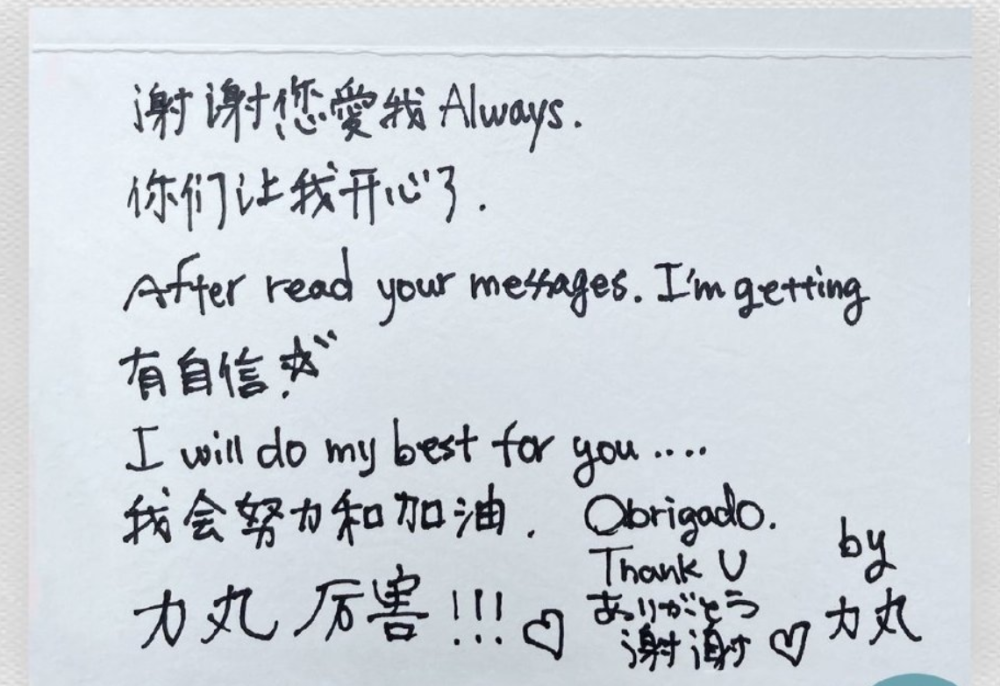 谢谢您愛我 Always.
你们让我开心了.
After read your messages. I'm getting
有自信☆
I will do my best for you ....
我会努力和加油. Obrigado.
Thank U
ありがとう
谢谢♡
力丸 厉害!!!♡
by
力丸